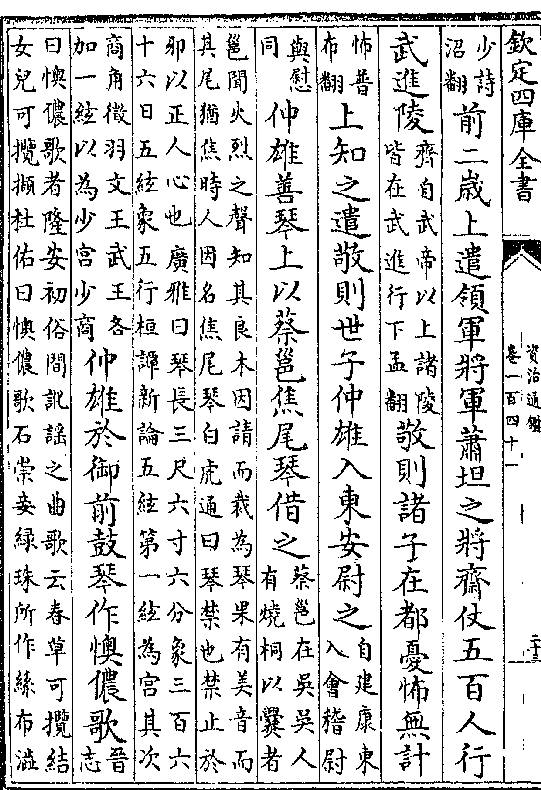 欽定四庫全書
資治通鑑
卷一百四十一
二十三
少詩
沼翻
前二歳上遣領軍將軍蕭坦之將齋仗五百人行
武進陵
齊自武帝以上諸陵
皆在武進行下孟翻
敬則諸子在都憂怖無計
怖普
布翻
上知之遣敬則世子仲雄入東安尉之
自建康東
入會稽尉
與慰
同
仲雄善琴上以蔡邕焦尾琴借之
蔡邕在吳吳人
有燒桐以爨者
邕聞火烈之聲知其良木因請而裁為琴果有美音而
其尾猶焦時人因名焦尾琴白虎通曰琴禁也禁止於
卯以正人心也廣雅曰琴長三尺六寸六分象三百六
十六日五絃象五行桓譚新論五絃第一絃為宫其次
商角徵羽文王武王各
加一絃以為少宫少商
仲雄於御前鼓琴作懊儂歌
晉
志
曰懊儂歌者隆安初俗間訛謡之曲歌云春草可攬結
女兒可攬擷杜佑曰懊儂歌石崇妾緑珠所作絲布澁